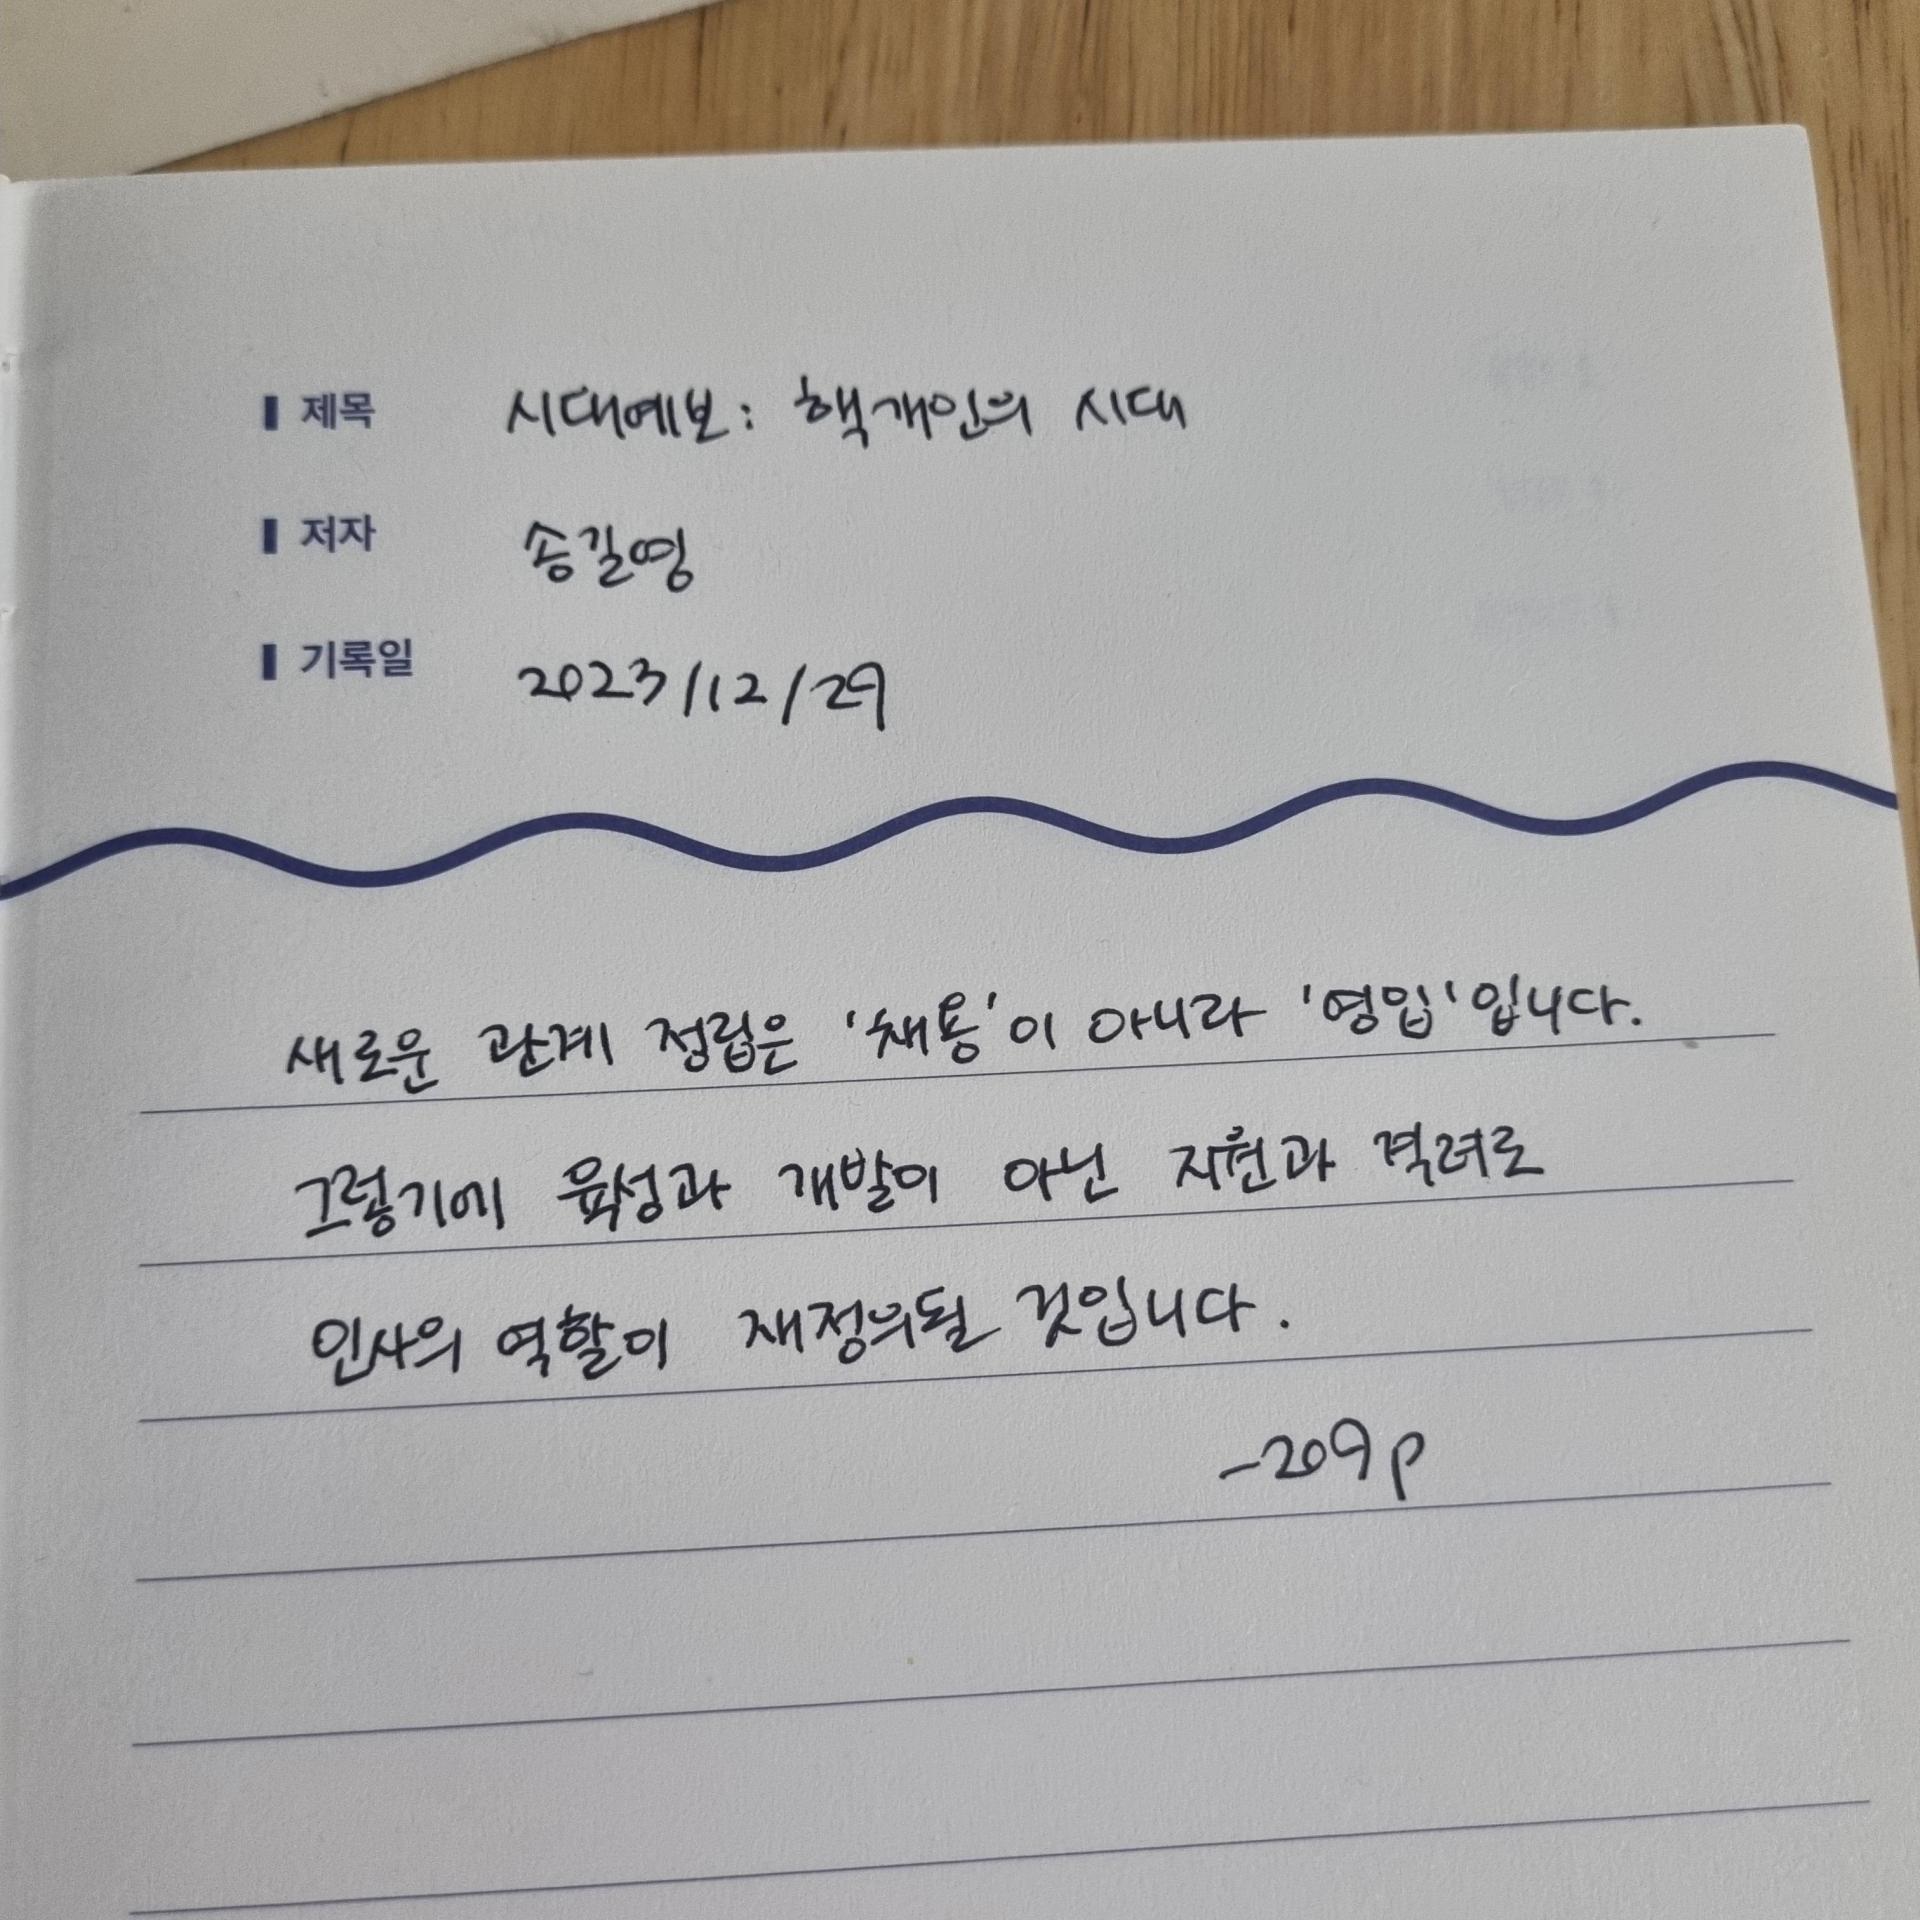 제목 시대예보: 핵개인의 시대
저자 송길영
기록일 2023/12/29
새로운 관계 정립은 '채용'이 아니라 '영입'입니다.
그렇기에 육성과 개발이 아닌 지원과 격려로
인사의 역할이 재정의될 것입니다.
-209p